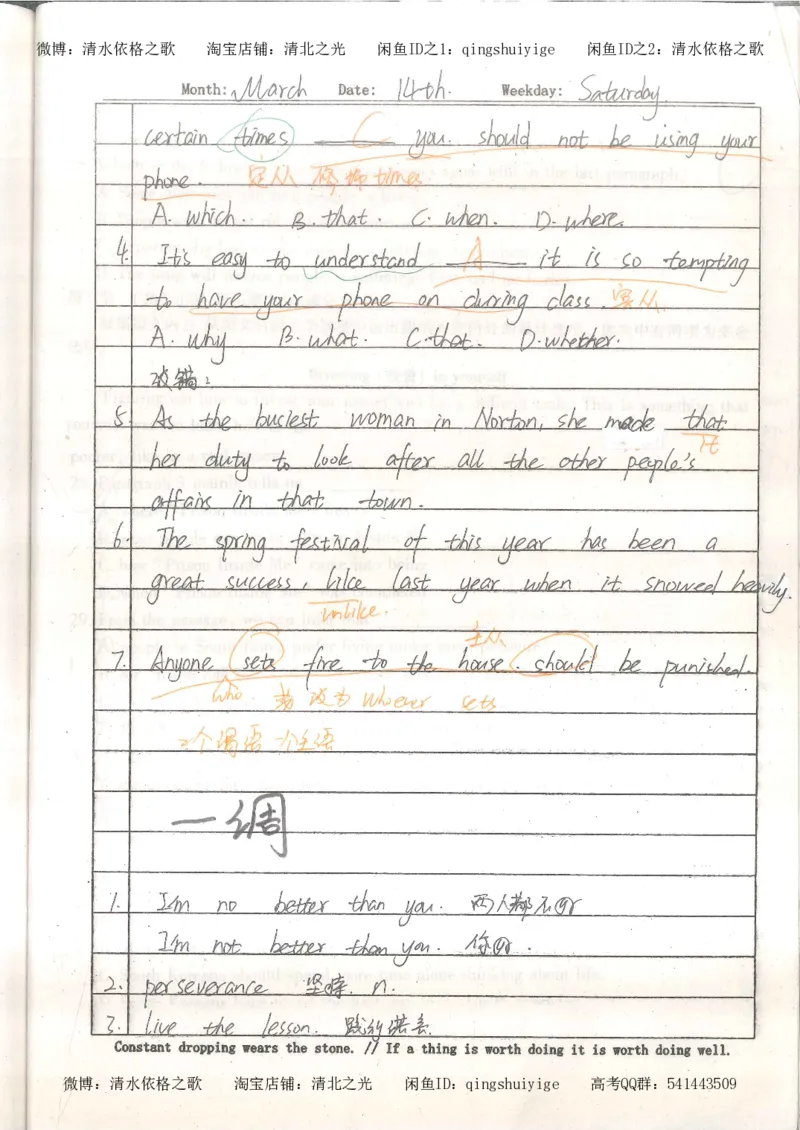 微博：清水依格之歌 淘宝店铺：清北之光 闲鱼ID之1：qingshuiyige 闲鱼ID之2：清水依格之歌
Month: March Date: 14th. Weekday: Saturday.
certain times C you should not be using your
phone. 定从 修饰 times
A. which. B. that. C. when. D. where.
4. It's easy to understand A it is so tempting
to have your phone on during class. 宾从
A. why B. what. C. that. D. whether.
改错：
5. As the busiest woman in Norton, she made that
it
her duty to look after all the other people's
affairs in that town.
6. The spring festival of this year has been a
great success, like last year when it snowed heavily.
unlike.
主从
7. Anyone sets fire to the house should be punished.
who 若改为 Whoever sets
2个谓语 一个主语
一调
1. I'm no better than you. 两人都不好
I'm not better than you. 你好.
2. perseverance 坚持. n.
3. live the lesson. 践行诺言
Constant dropping wears the stone. // If a thing is worth doing it is worth doing well.
微博：清水依格之歌 淘宝店铺：清北之光 闲鱼ID：qingshuiyige 高考QQ群：541443509